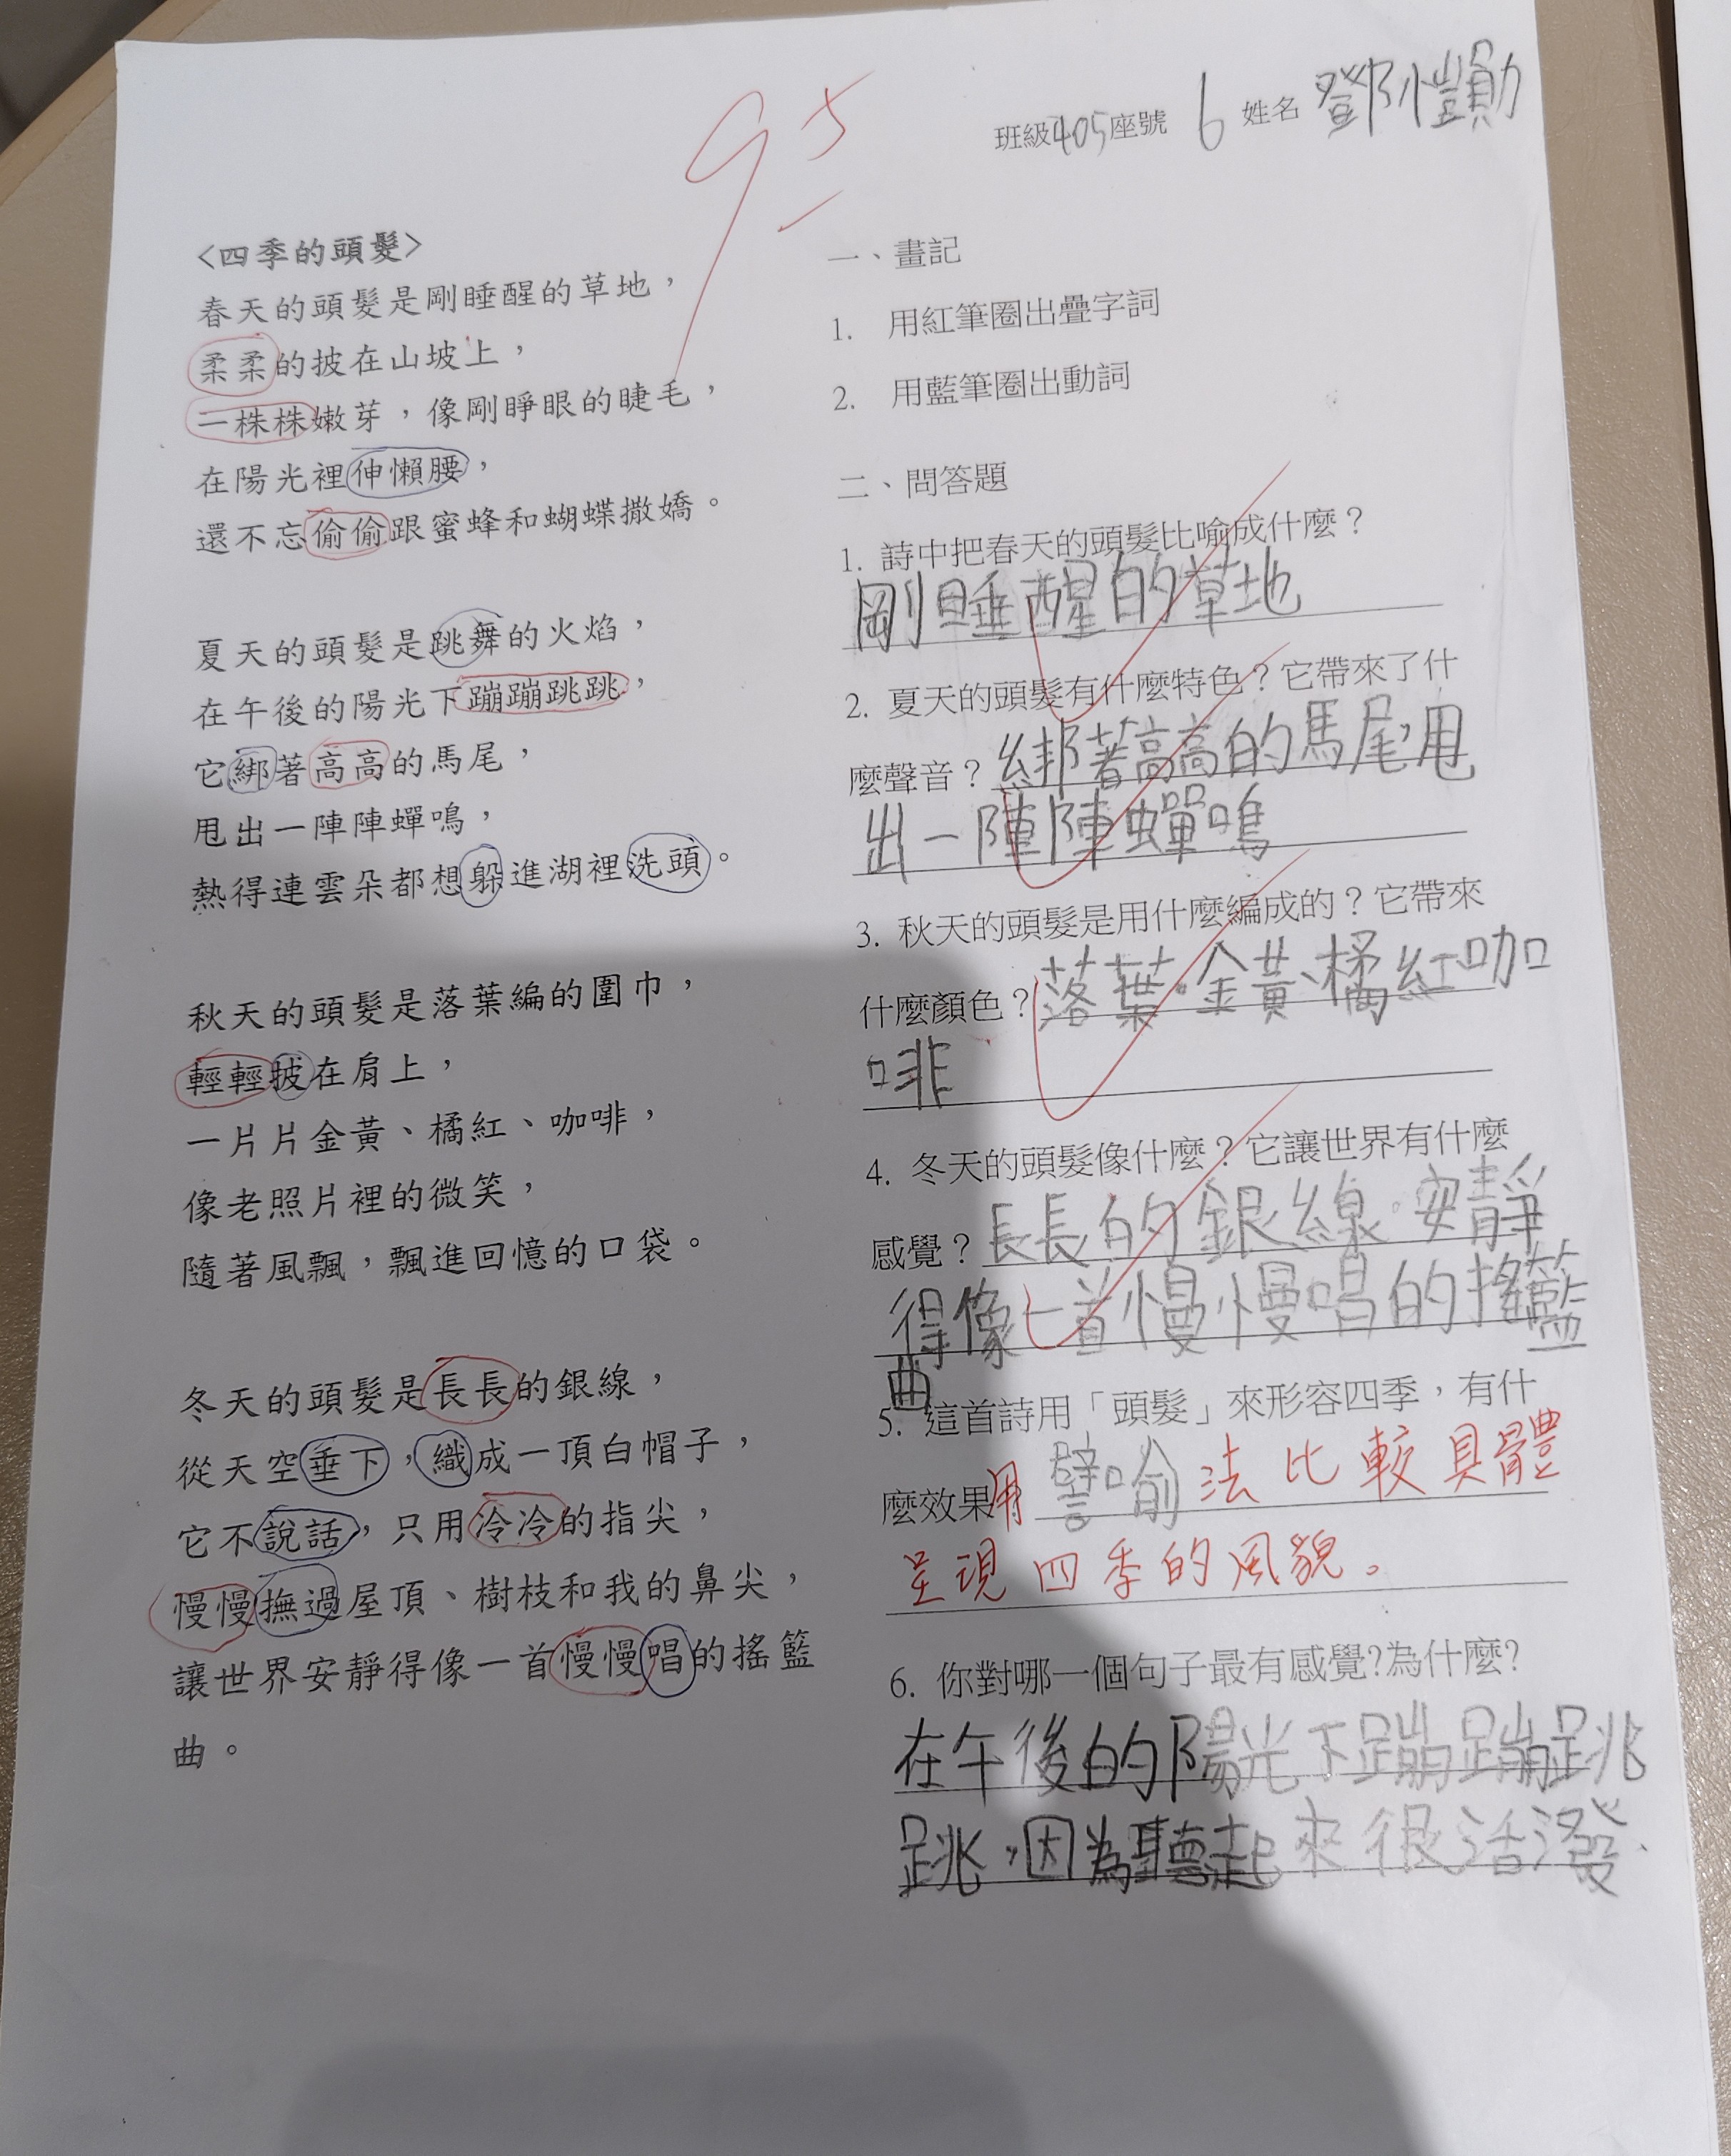 95
班級405座號 6 姓名 鄧愷勛
〈四季的頭髮〉
春天的頭髮是剛睡醒的草地，
柔柔的披在山坡上，
一株株嫩芽，像剛睜眼的睫毛，
在陽光裡伸懶腰，
還不忘偷偷跟蜜蜂和蝴蝶撒嬌。
夏天的頭髮是跳舞的火焰，
在午後的陽光下蹦蹦跳跳，
它綁著高高的馬尾，
甩出一陣陣蟬鳴，
熱得連雲朵都想躲進湖裡洗頭。
秋天的頭髮是落葉編的圍巾，
輕輕披在肩上，
一片片金黃、橘紅、咖啡，
像老照片裡的微笑，
隨著風飄，飄進回憶的口袋。
冬天的頭髮是長長的銀線，
從天空垂下，織成一頂白帽子，
它不說話，只用冷冷的指尖，
慢慢撫過屋頂、樹枝和我的鼻尖，
讓世界安靜得像一首慢慢唱的搖籃
曲。
一、畫記
1. 用紅筆圈出疊字詞
2. 用藍筆圈出動詞
二、問答題
1. 詩中把春天的頭髮比喻成什麼？
剛睡醒的草地
2. 夏天的頭髮有什麼特色？它帶來了什
麼聲音？綁著高高的馬尾，甩
出一陣陣蟬鳴
3. 秋天的頭髮是用什麼編成的？它帶來
什麼顏色？落葉。金黃、橘紅咖
啡
4. 冬天的頭髮像什麼？它讓世界有什麼
感覺？長長的銀線。安靜
得像一首慢慢唱的搖籃
曲
5. 這首詩用「頭髮」來形容四季，有什
麼效果用譬喻法比較具體
呈現四季的風貌。
6. 你對哪一個句子最有感覺?為什麼?
在午後的陽光下蹦蹦跳
跳，因為聽起來很活潑.